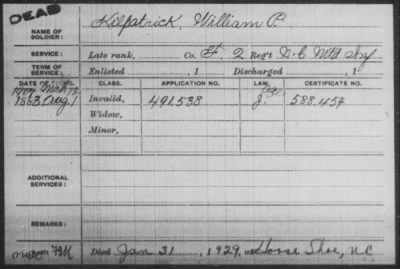 DEAD
NAME OF SOLDIER: Kilpatrick, William P.
SERVICE: Late rank, Co. 2 Reg't Mtd Inf
TERM OF SERVICE: Enlisted , 1 Discharged , 1
DATE OF FILING. CLASS. APPLICATION NO. LAW. CERTIFICATE NO.
1863 Aug 1 Invalid, 491.538 J. 588.457
Widow,
Minor,
ADDITIONAL SERVICES:
REMARKS:
Died Jan 31 , 1929, at Horse Shoe, N.C.